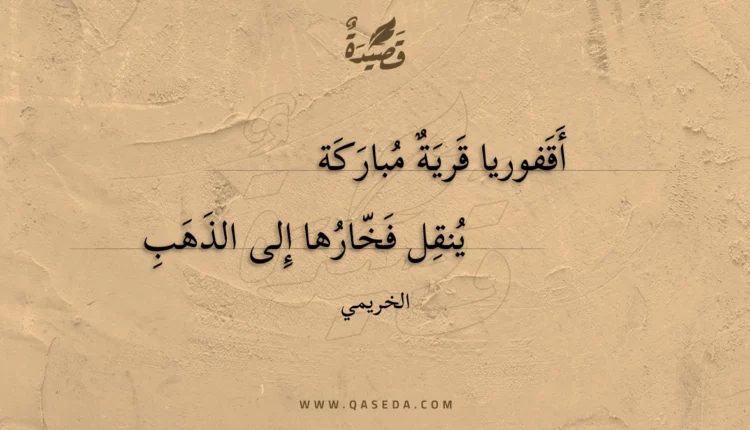 قَصِيدَةٌ
أَقَفوريا قَريَةٌ مُبارَكَة
يُنقِل فَخّارُها إِلى الذَهَبِ
الخريمي
WWW.QASEDA.COM